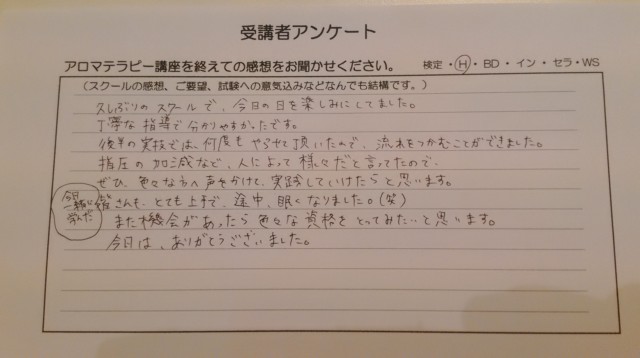 受講者アンケート
アロマテラピー講座を終えての感想をお聞かせください。 検定・H・BD・イン・セラ・WS
(スクールの感想、ご要望、試験への意気込みなどなんでも結構です。)
久しぶりのスクールで、今日の日を楽しみにしてました。
丁寧な指導で分かりやすかったです。
後半の実技では、何度もやらせて頂いたんで、流れをつかむことができました。
指圧の加減など、人によって様々だと言ってたので、
ぜひ、色々な方へ声をかけて、実践していけたらと思います。
今日一緒に学んだ
さんも、とても上手で、途中、眠くなりました。(笑)
また機会があったら色々な資格をとってみたいと思います。
今日は、ありがとうございました。